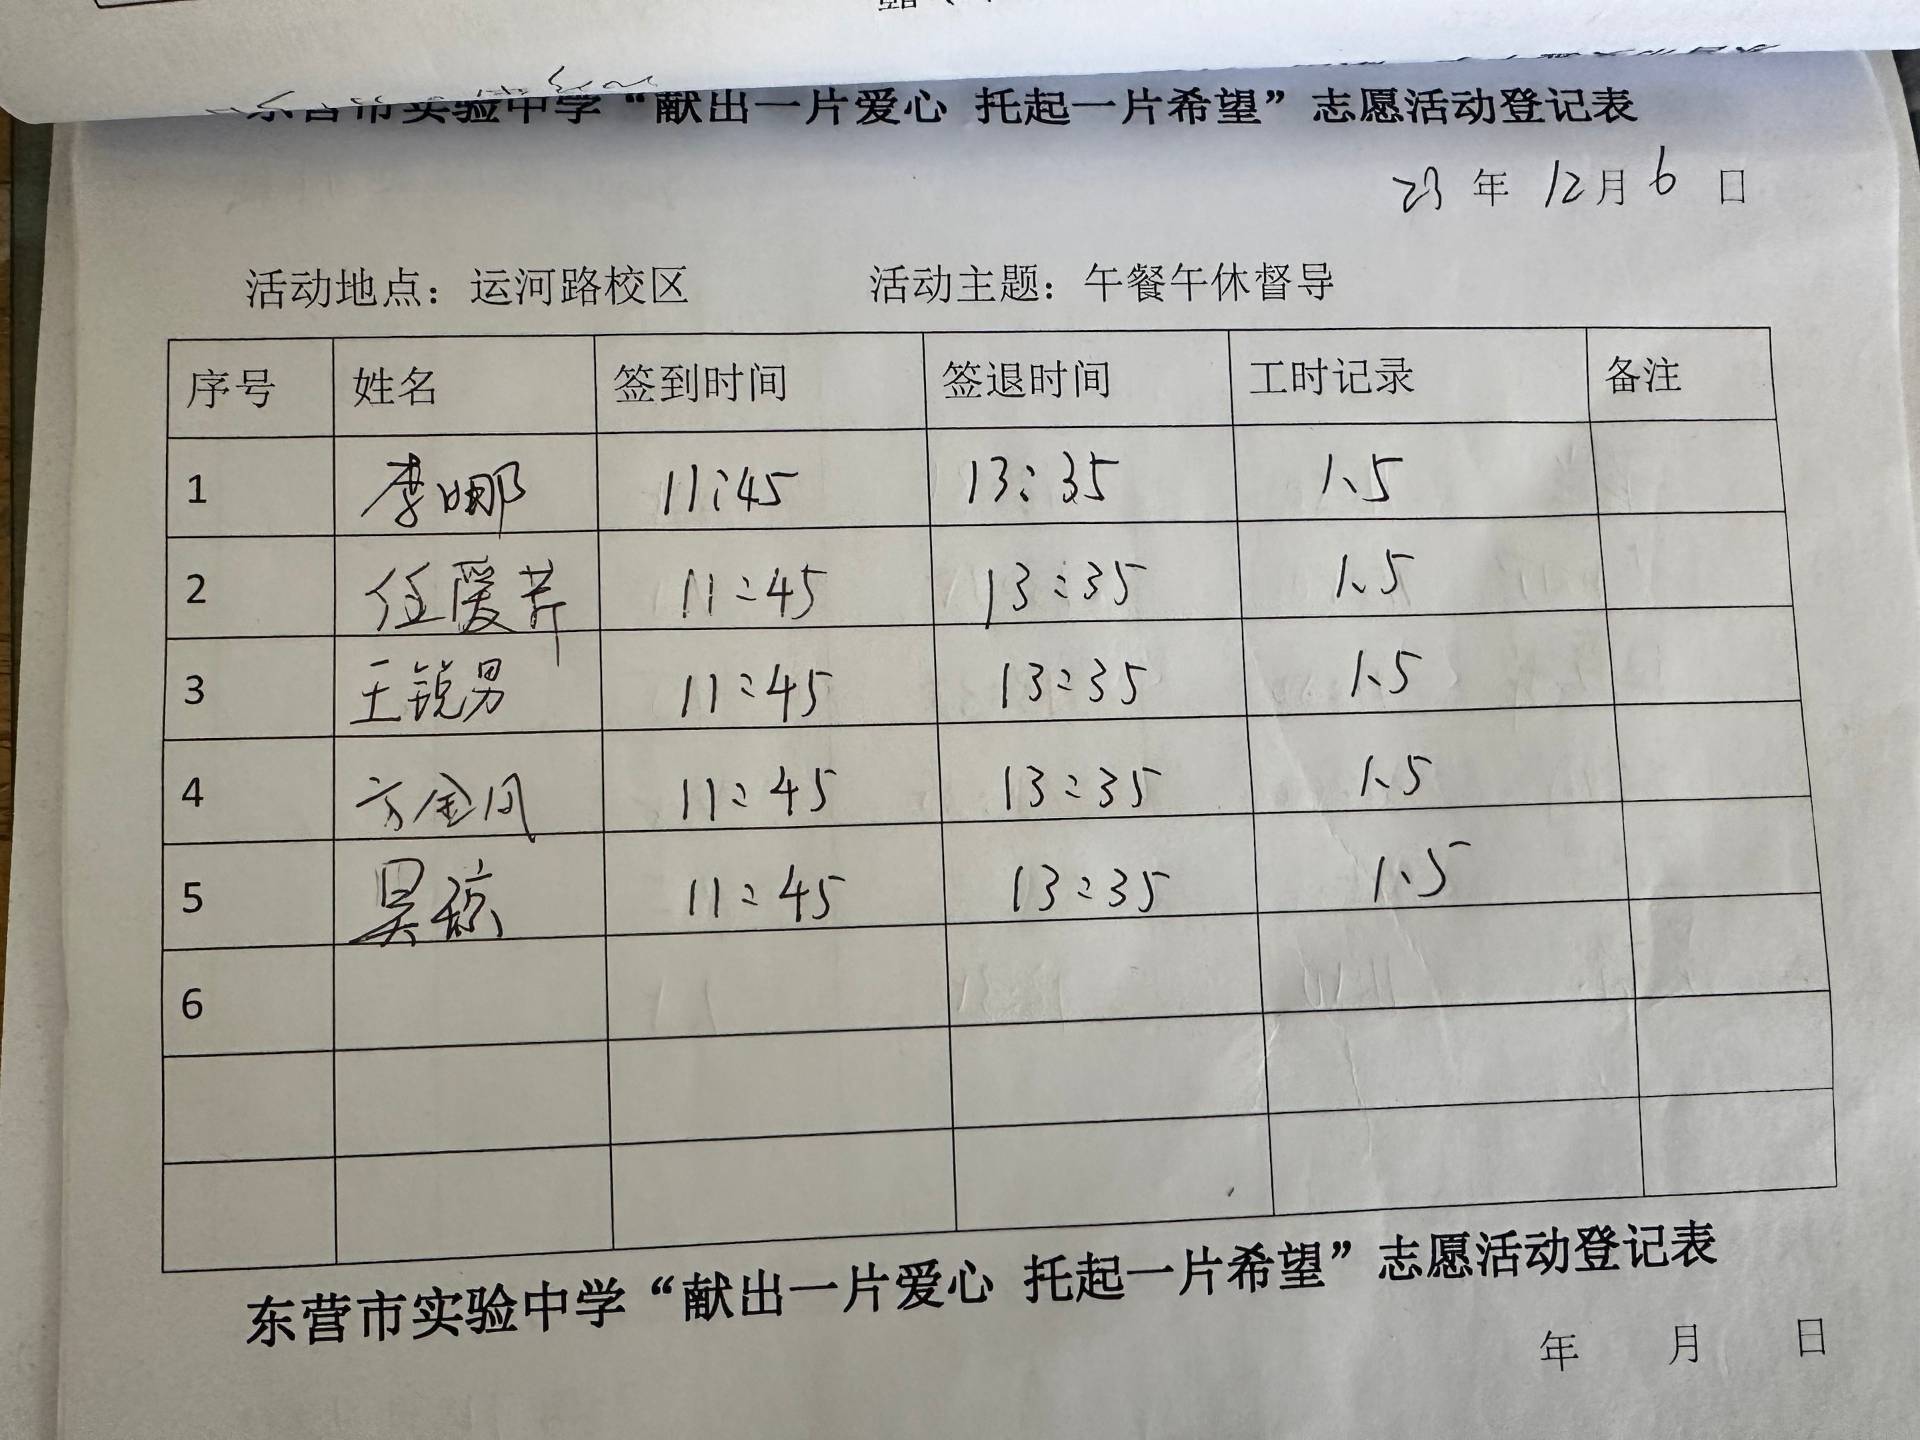 东营市实验中学“献出一片爱心 托起一片希望”志愿活动登记表
23 年 12 月 6 日
活动地点：运河路校区 活动主题：午餐午休督导
序号 姓名 签到时间 签退时间 工时记录 备注
1 李娜 11:45 13:35 1.5
2 任爱芹 11:45 13:35 1.5
3 王锐男 11:45 13:35 1.5
4 方金凤 11:45 13:35 1.5
5 吴琼 11:45 13:35 1.5
6
东营市实验中学“献出一片爱心 托起一片希望”志愿活动登记表
年 月 日